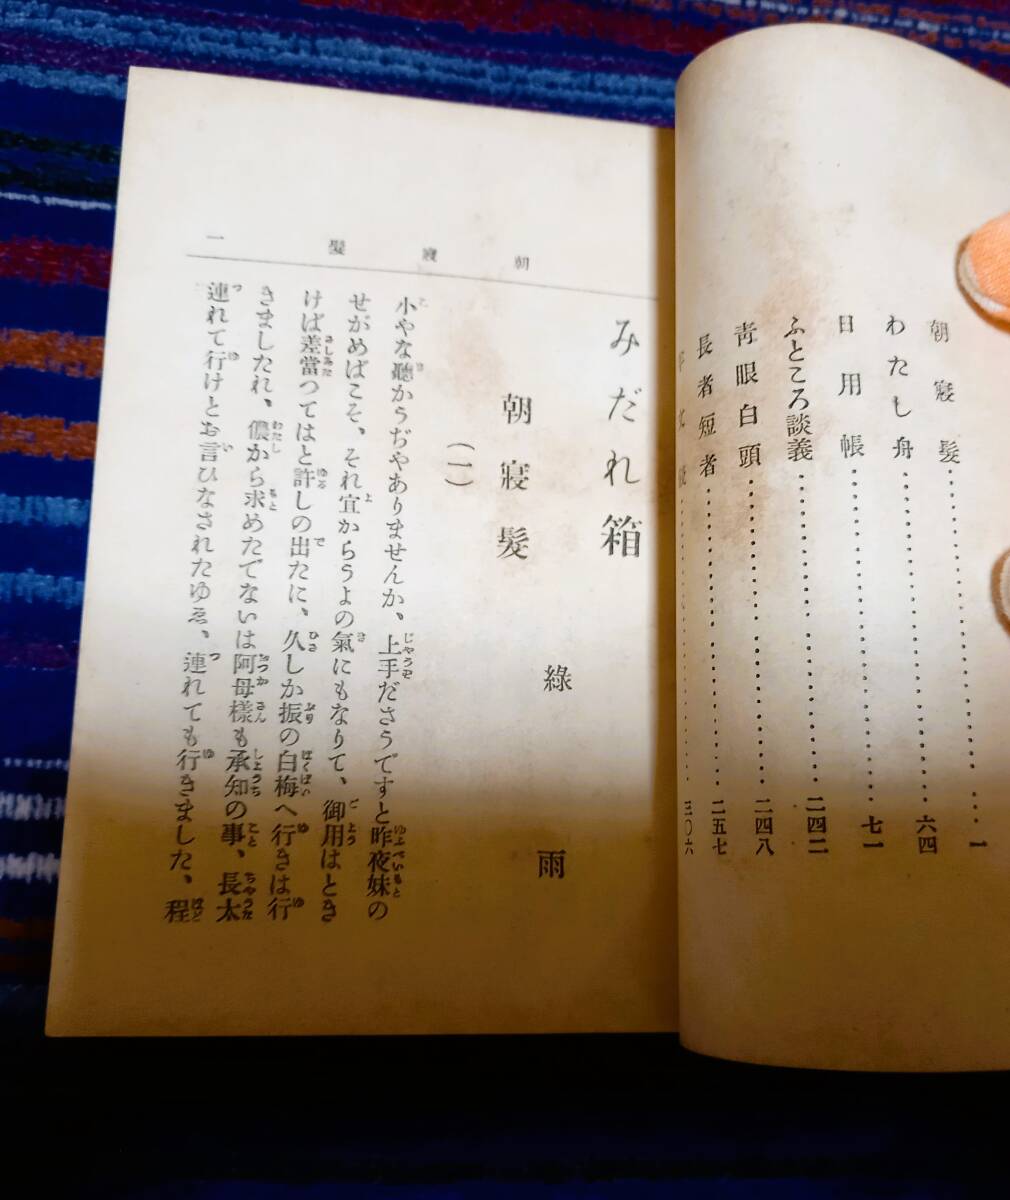 朝寢髮……………一
わたし舟……………六四
日用帳……………七一
ふところ談義……………二四二
靑眼白頭……………二四八
長者短者……………二五七
……………三〇六
朝寢髮 一
みだれ箱
綠雨
朝寢髮
(一)
小やな聽かうぢやありませんか、上手ださうですと昨夜妹の
せがめばこそ、それ宜からうよの氣にもなりて、御用はとき
けば差當つてはと許しの出たに、久しか振の白梅へ行きは行
きましたれ、儂から求めたでないは阿母樣も承知の事、長太
連れて行けとお言ひなされたゆゑ、連れても行きました、程